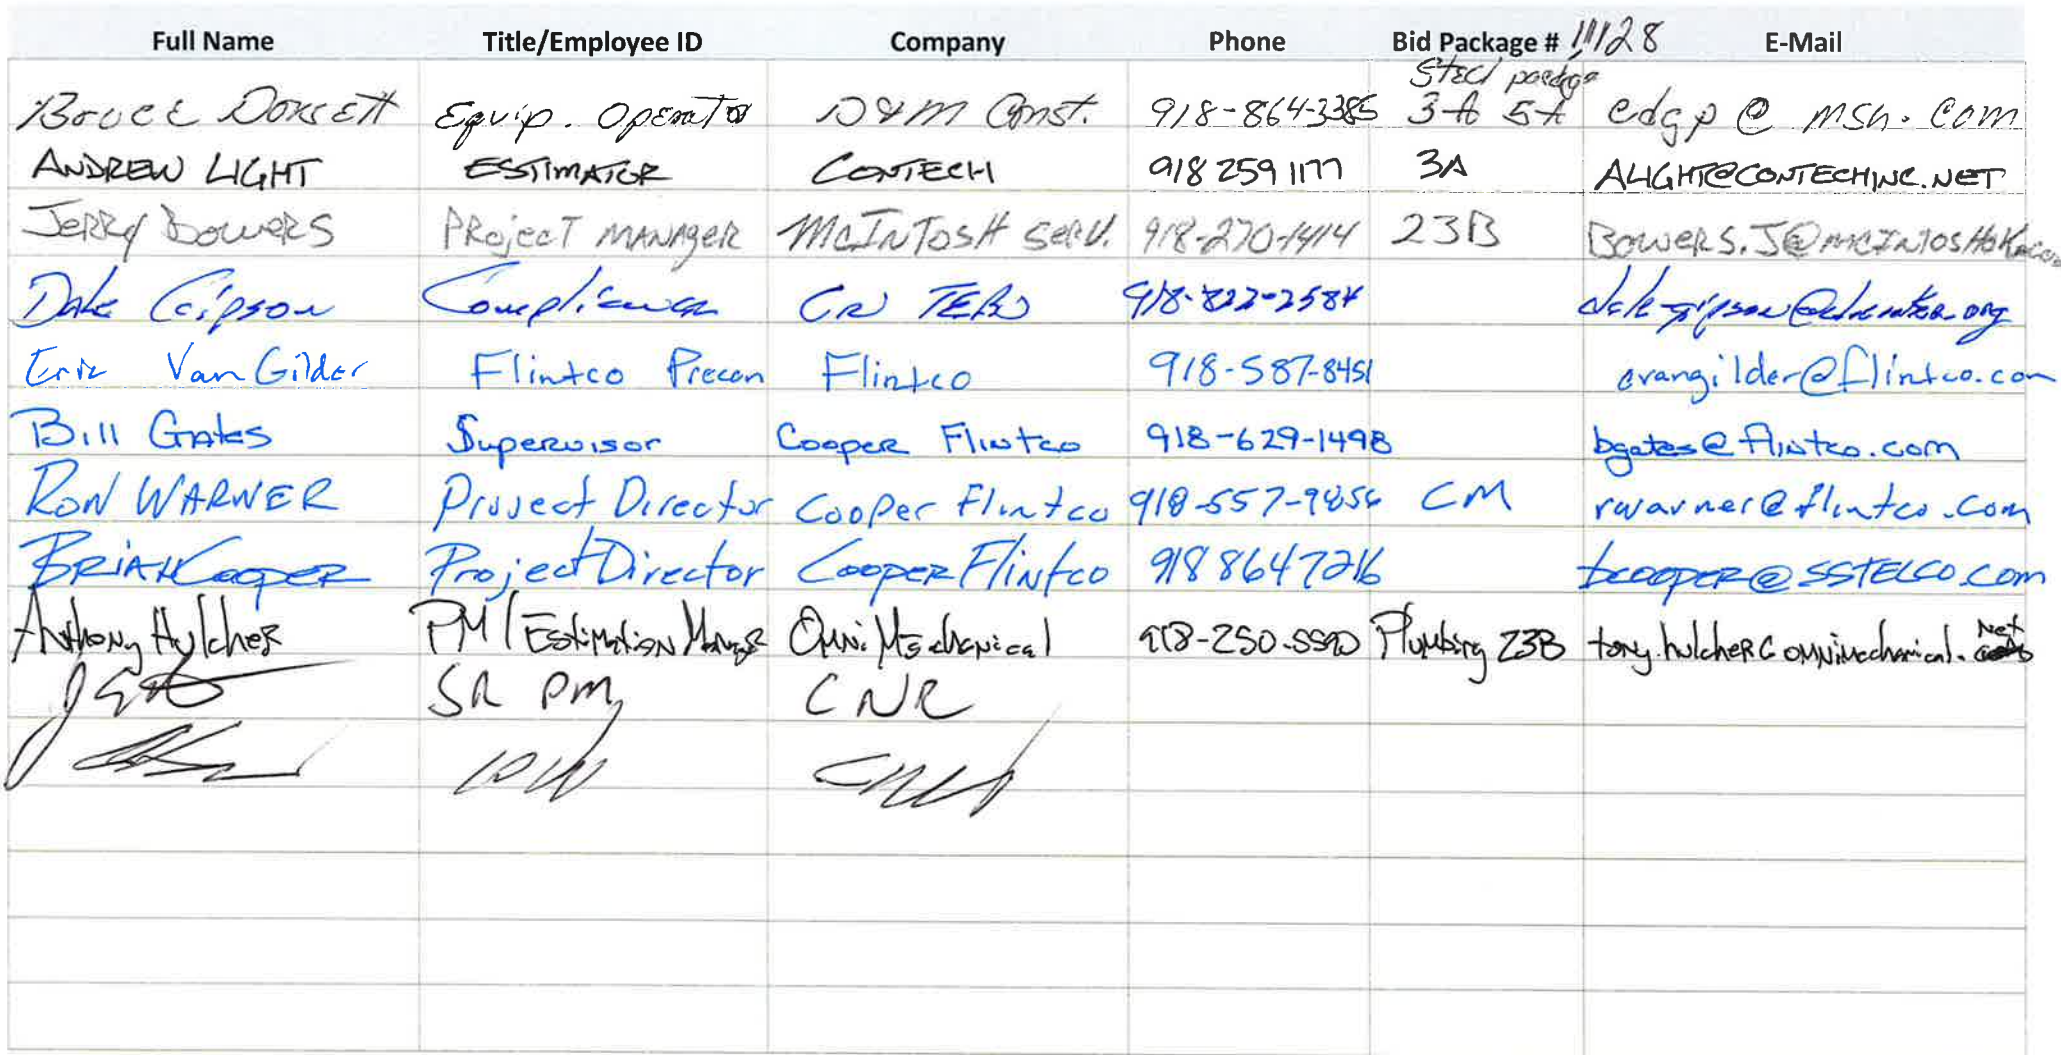 Full Name Title/Employee ID Company Phone Bid Package # E-Mail
Steel package
Bruce Dorsett Equip. Operator D&M Const. 918-864-3385 3-A 5-A edgp@msn.com
ANDREW LIGHT ESTIMATOR CONTECH 918 259 1177 3A ALIGHT@CONTECHINC.NET
Jerry Bowers PROjecT MANAGER McINTOSH SERV. 918-270-1414 23B
Dale Gipson Compliance CN TERO 918-822-2584
Eric VanGilder Flintco Precon Flintco 918-587-8451 evangilder@flintco.com
Bill Gates Supervisor Cooper Flintco 918-629-1498 bgates@flintco.com
RON WARNER Project Director Cooper Flintco 918-557-9856 CM rwarner@flintco.com
BRIAN COOPER Project Director Cooper Flintco 918 864 7216 bcooper@SSTELCO.com
Anthony Hulcher PM/Estimation Manager Omni Mechanical 918-250-5590 Plumbing 23B tony.hulcher@omnimechanical.net
SR PM